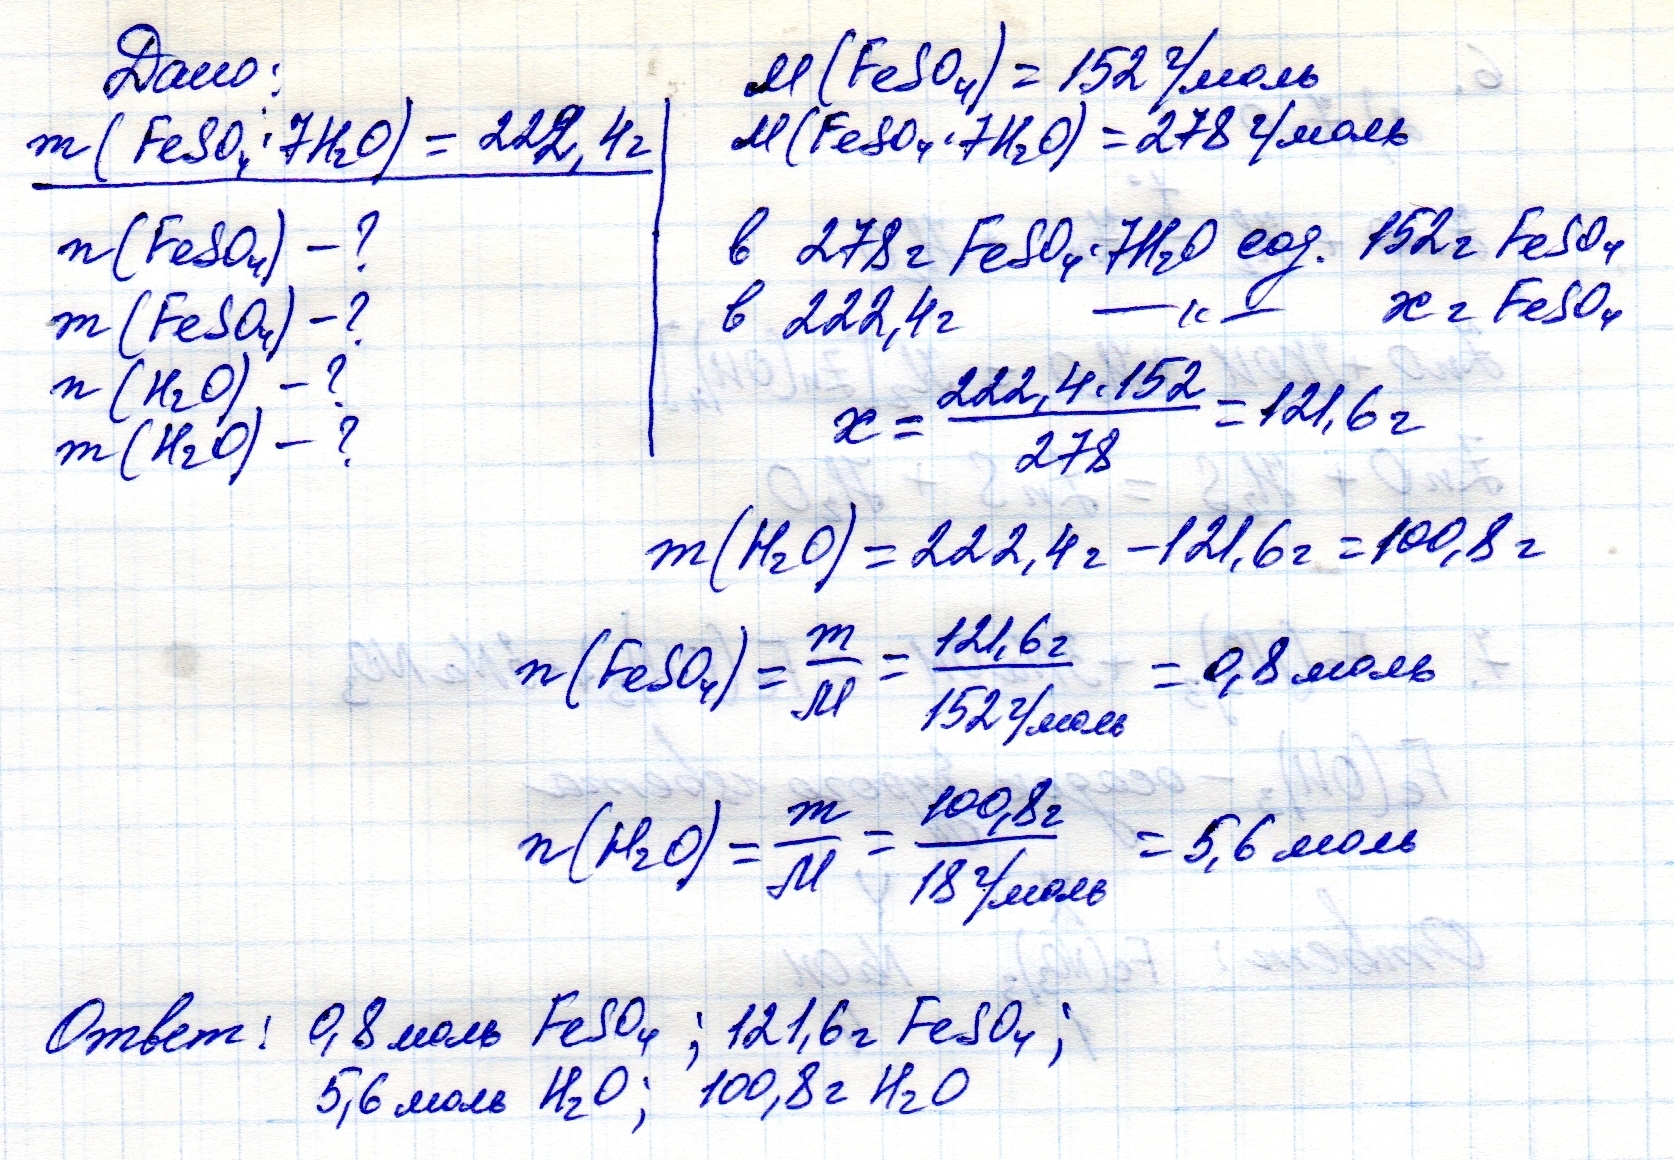 Дано:
m(FeSO₄·7H₂O) = 222,4г
n(FeSO₄) – ?
m(FeSO₄) – ?
n(H₂O) – ?
m(H₂O) – ?
M(FeSO₄) = 152 г/моль
M(FeSO₄·7H₂O) = 278 г/моль
в 278г FeSO₄·7H₂O сод. 152г FeSO₄
в 222,4г —"— x г FeSO₄
x = 222,4·152 / 278 = 121,6г
m(H₂O) = 222,4г – 121,6г = 100,8г
n(FeSO₄) = m/M = 121,6г / 152 г/моль = 0,8 моль
n(H₂O) = m/M = 100,8г / 18 г/моль = 5,6 моль
Ответ: 0,8 моль FeSO₄; 121,6г FeSO₄;
5,6 моль H₂O; 100,8г H₂O